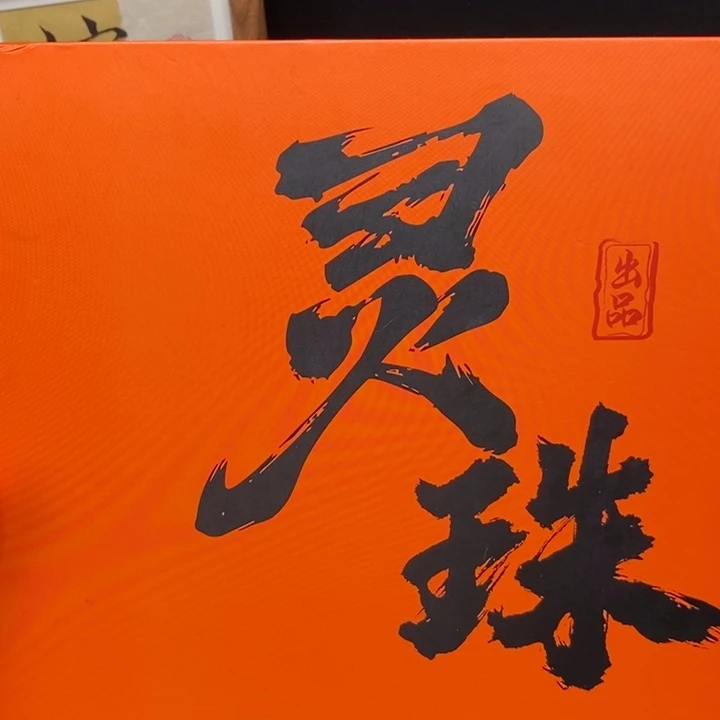 灵
珠
出品